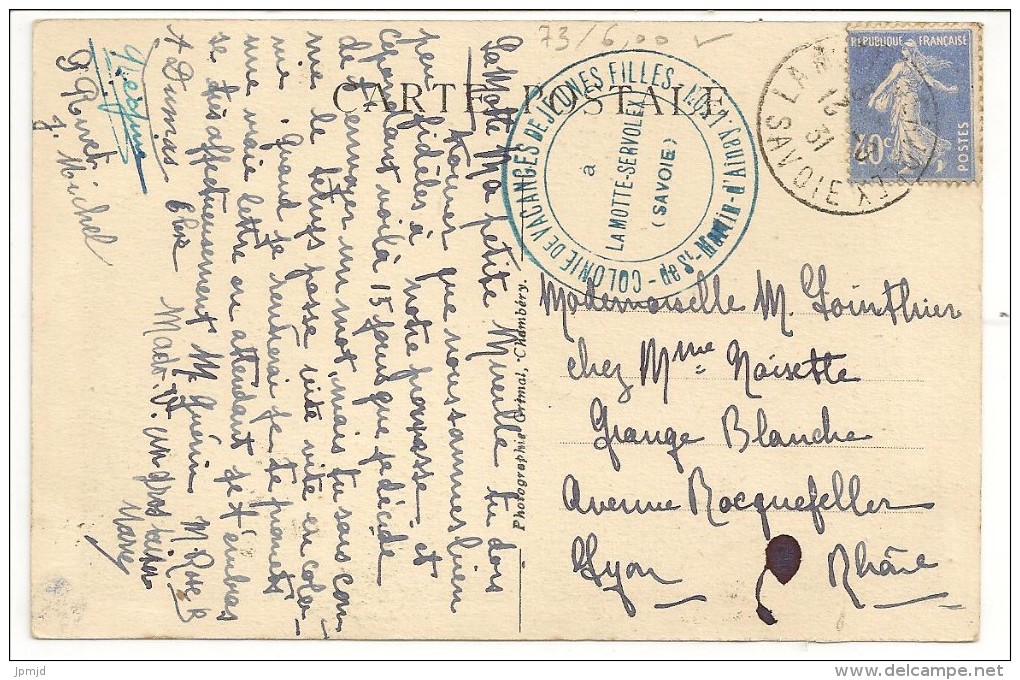 73/6,00
CARTE POSTALE
La Motte Ma petite Mireille tu dois
t'étonner que nous sommes bien
peu fidèles à notre promesse et
cependant voilà 15 jours que je décide
de t'envoyer un mot, mais tu sais com
me le temps passe vite vite en colo-
nie. Quand je rentrerai je te promets
une vraie lettre en attendant je t'embras
se très affectueusement M. Guérin M. Rose B
A Dumas Mado. un gros baiser
P Rivet
J. Michel
Photographie Grimal, Chambéry.
COLONIE DE VACANCES DE JEUNES FILLES
de St-Martin-d'Ainay, LYON
a
LA MOTTE-SERVOLEX
(SAVOIE)
REPUBLIQUE FRANÇAISE
40c
POSTES
LA M
12
31
SAVOIE
Mademoiselle M. Gointhier
chez Mme Noisette
Grange Blanche
Avenue Rocquefeller
Lyon Rhône
jpmjd
www.delcampe.net